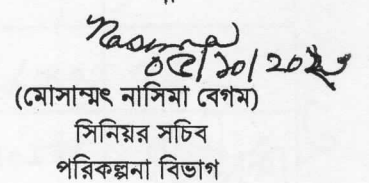 Nasima
০৫/১০/২০২৩
(মোসাম্মৎ নাসিমা বেগম)
সিনিয়র সচিব
পরিকল্পনা বিভাগ